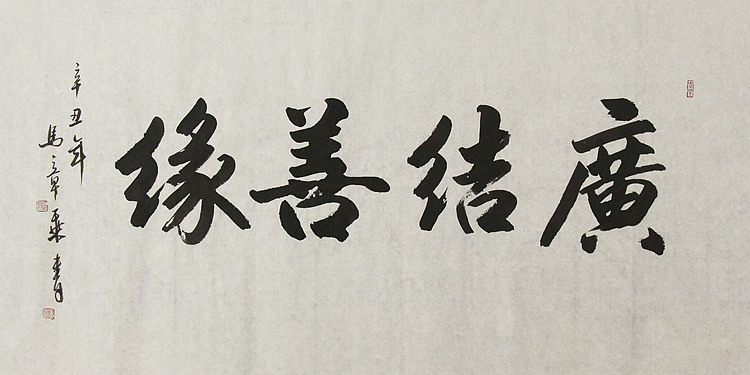 廣結善緣
辛丑年
馬章乘書